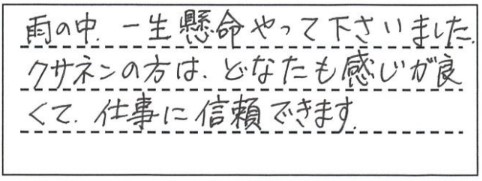 雨の中、一生懸命やって下さいました。
クサネンの方は、どなたも感じが良
くて、仕事に信頼できます。